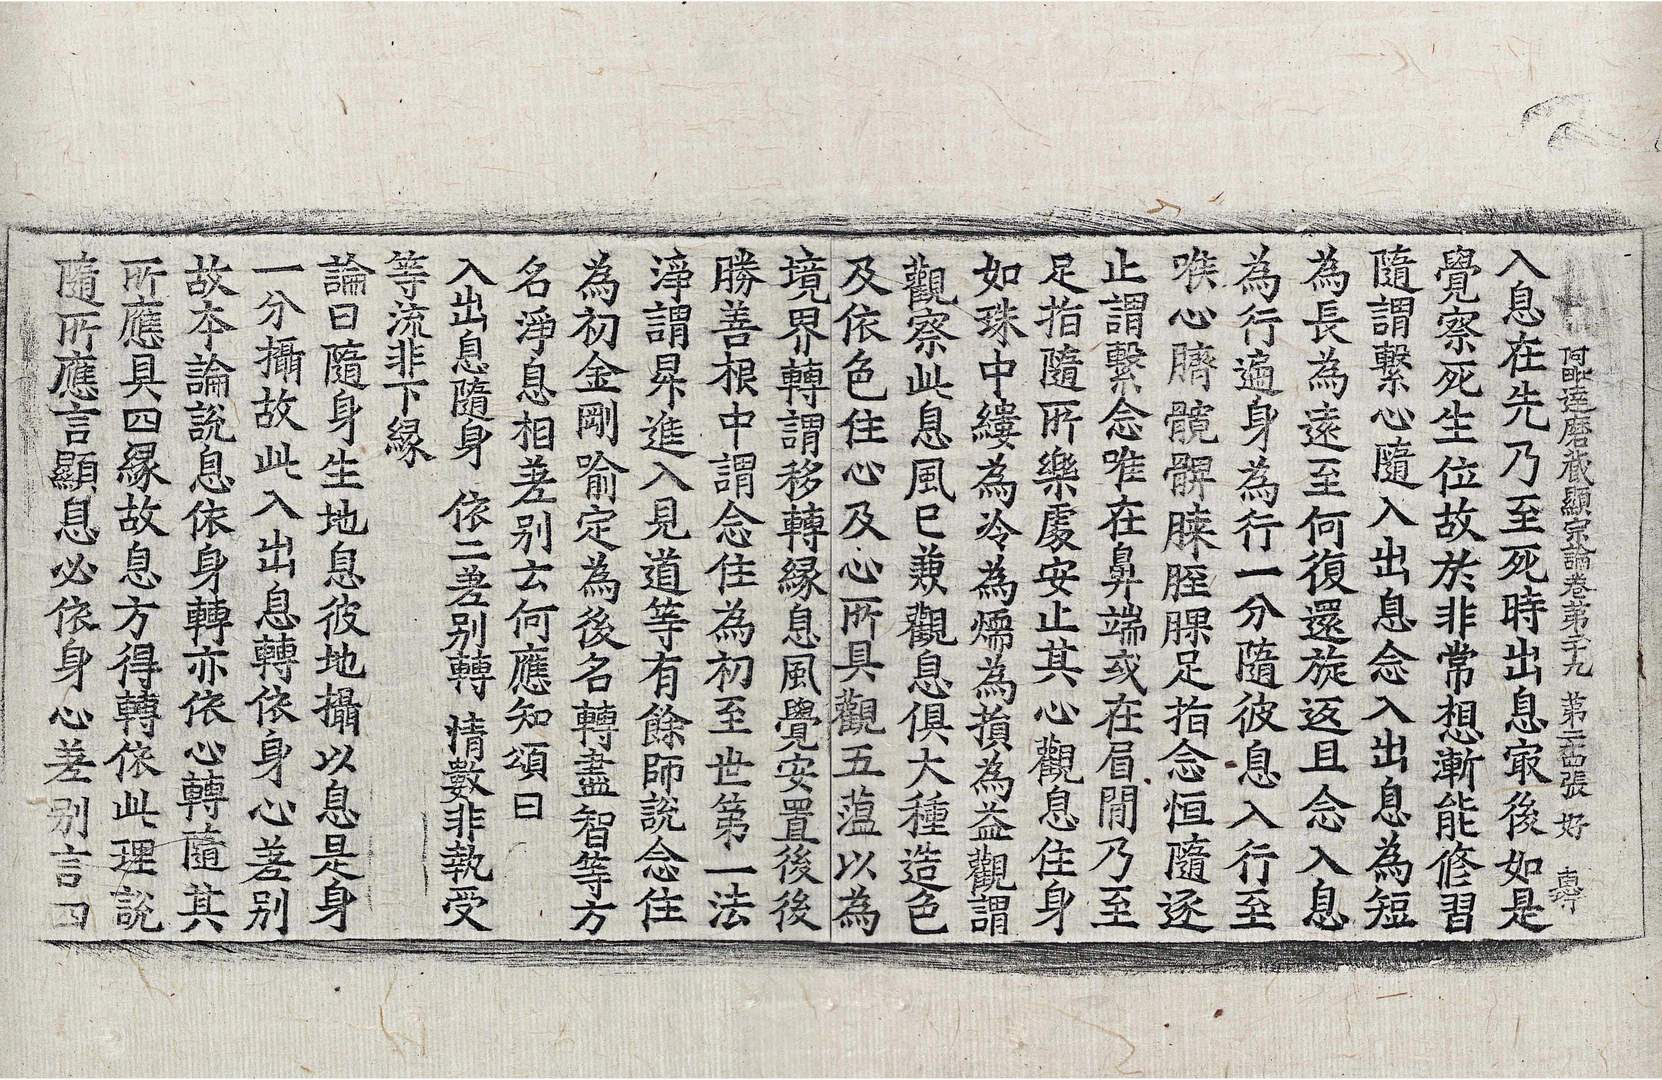 阿毗達磨藏顯宗論卷第二十九 第二十四張 好
入息在先乃至死時出息冣後如是
覺察死生位故於非常想漸能修習
隨謂繫心隨入出息念入出息為短
為長為遠至何復還旋返且念入息
為行遍身為行一分隨彼息入行至
喉心臍髖髀䏶脛踝足指念恒隨逐
止謂繫念唯在鼻端或在眉間乃至
足指隨所樂處安止其心觀息住身
如珠中縷為冷為煗為損為益觀謂
觀察此息風已兼觀息俱大種造色
及依色住心及心所具觀五蘊以為
境界轉謂移轉緣息風覺安置後後
勝善根中謂念住為初至世第一法
淨謂昇進入見道等有餘師說念住
為初金剛喻定為後名轉盡智等方
名淨息相差別云何應知頌曰
入出息隨身 依二差別轉 情數非執受
等流非下緣
論曰隨身生地息彼地攝以息是身
一分攝故此入出息轉依身心差別
故本論說息依身轉亦依心轉隨其
所應具四緣故息方得轉依此理說
隨所應言顯息必依身心差別言四